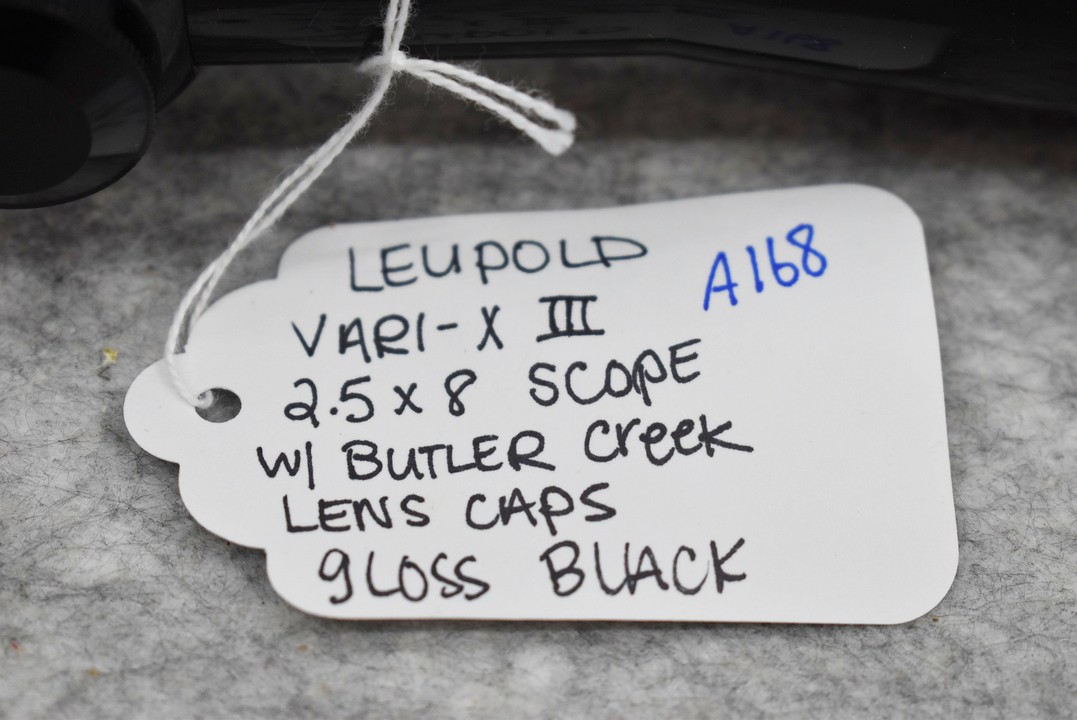 LEUPOLD
A168
VARI-X III
2.5 x 8 SCOPE
W/ BUTLER Creek
LENS CAPS
gLOSS BLACK